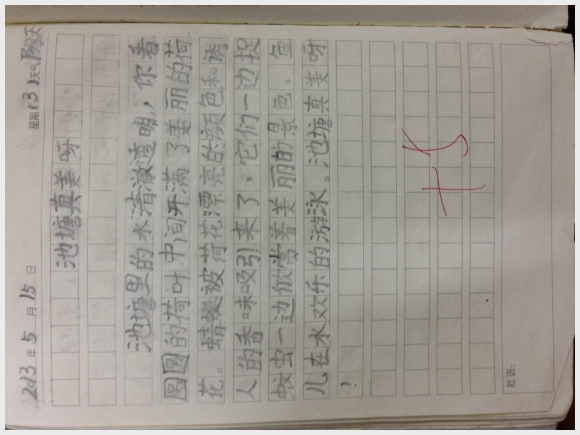 2013年5月15日 星期(3)天气阴天
池塘真美呀
池塘里的水清澈透明，你看
圆圆的荷叶中间开满了美丽的荷
花。蜻蜓被荷花漂亮的颜色和诱
人的香味吸引来了，它们一边捉
蚊虫一边欣赏着美丽的景色。鱼
儿在水欢乐的游泳。池塘真美呀
！
批语：